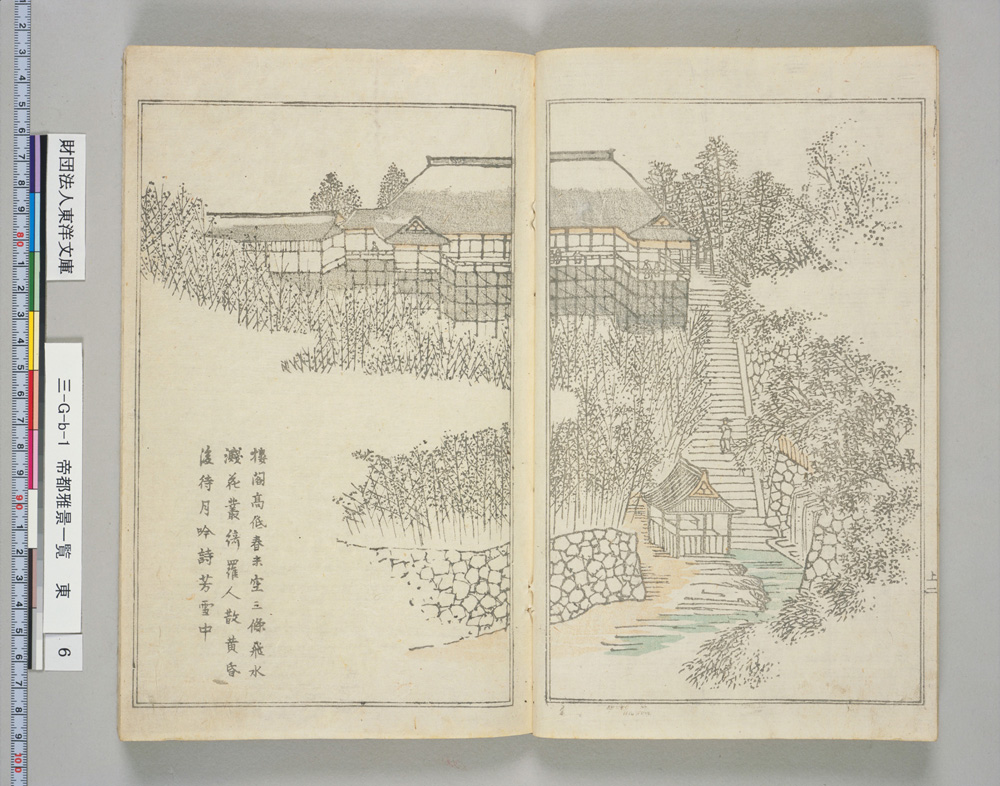 樓閣高低春未空三條飛水
濺花叢綺羅人散黄昏
後待月吟詩芳雪中
財団法人東洋文庫
三-G-b-1 帝都雅景一覧 東
6